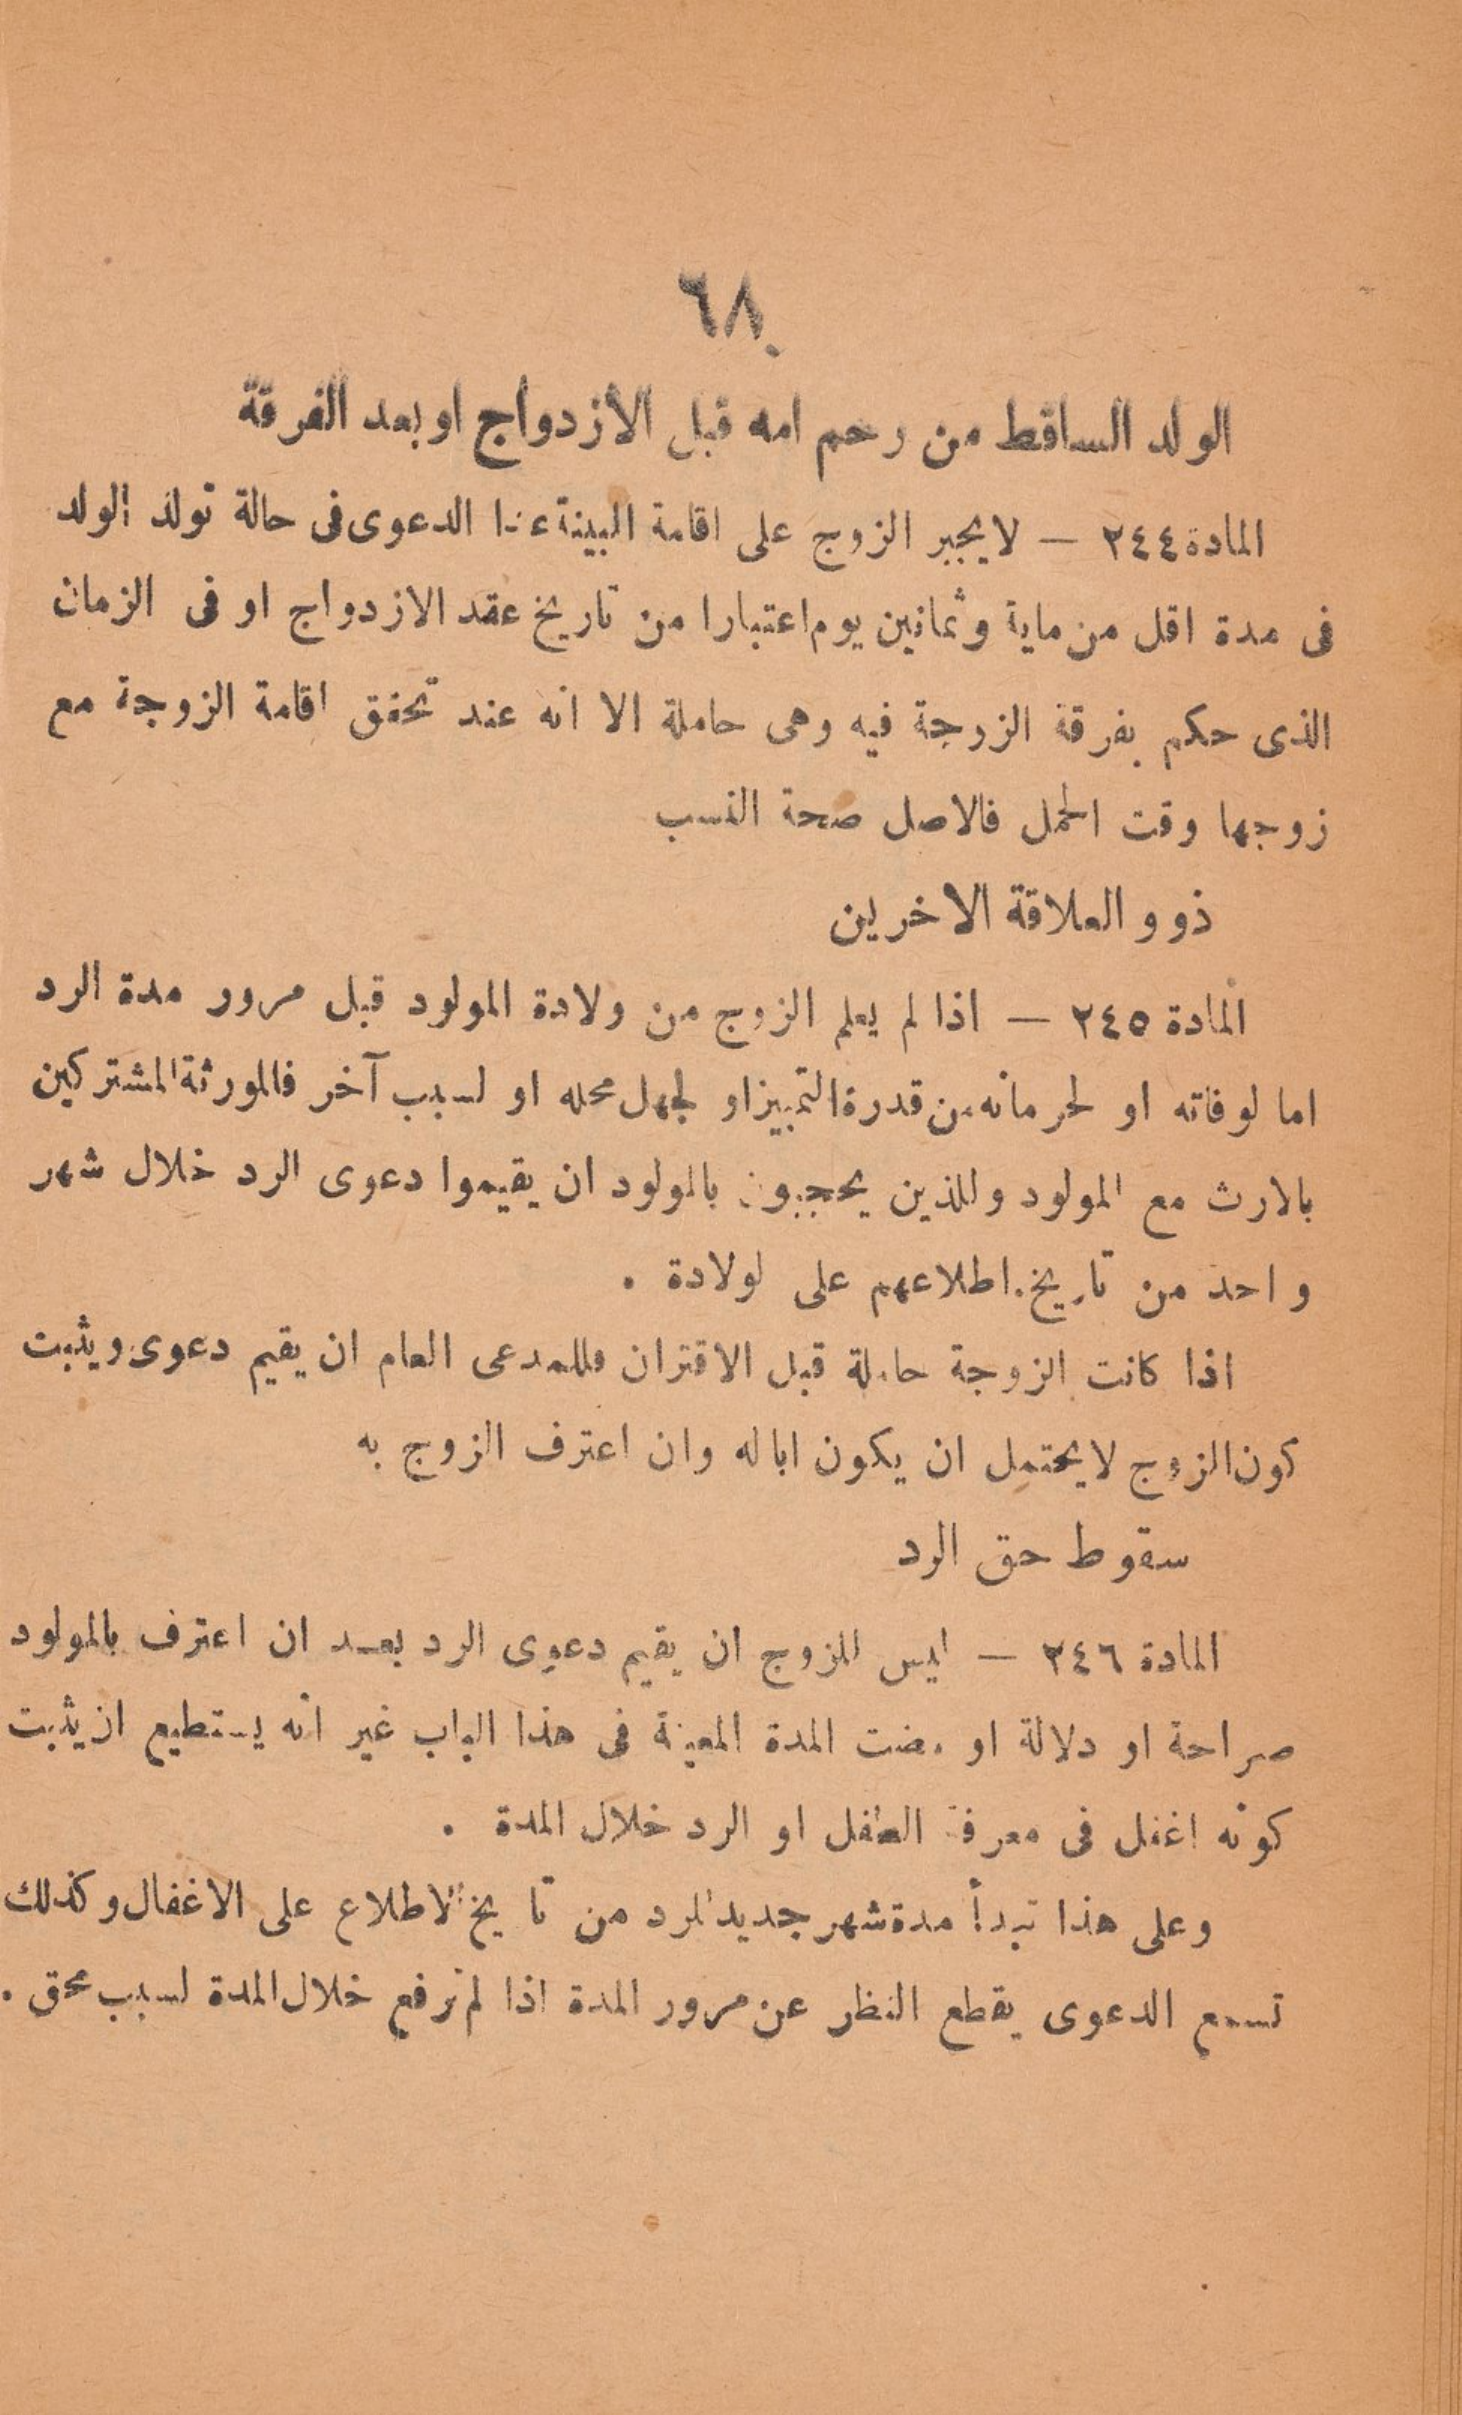 ٦٨
الولد الساقط من رحم امه قبل الازدواج او بعد الفرقة
المادة ٢٤٤ — لا يجبر الزوج على اقامة البينة الدعوى فى حالة تولد الولد
فى مدة اقل من ماية وثمانين يوم اعتبارا من تاريخ عقد الازدواج او فى الزمان
الذى حكم بفرقة الزوجة فيه وهى حاملة الا انه عند تحقق اقامة الزوجة مع
زوجها وقت الحمل فالاصل صحة النسب
ذوو العلاقة الاخرين
المادة ٢٤٥ — اذا لم يعلم الزوج من ولادة المولود قبل مرور مدة الرد
اما لوفاته او لحرمانه من قدرة التمييز او لجهل محله او لسبب آخر فالمورثة المشتركين
بالارث مع المولود وللذين يحجبون بالمولود ان يقيموا دعوى الرد خلال شهر
واحد من تاريخ اطلاعهم على لولادة .
اذا كانت الزوجة حاملة قبل الاقتران فللمدعى العام ان يقيم دعوى ويثبت
كون الزوج لا يحتمل ان يكون ابا له وان اعترف الزوج به
سقوط حق الرد
المادة ٢٤٦ — ليس للزوج ان يقيم دعوى الرد بعد ان اعترف بالمولود
صراحة او دلالة او مضت المدة المعينة فى هذا الباب غير انه يستطيع ان يثبت
كونه اغفل فى معرفة الطفل او الرد خلال المدة .
وعلى هذا تبدأ مدة شهر جديد للرد من تاريخ الاطلاع على الاغفال وكذلك
تسمع الدعوى بقطع النظر عن مرور المدة اذا لم ترفع خلال المدة لسبب محق .